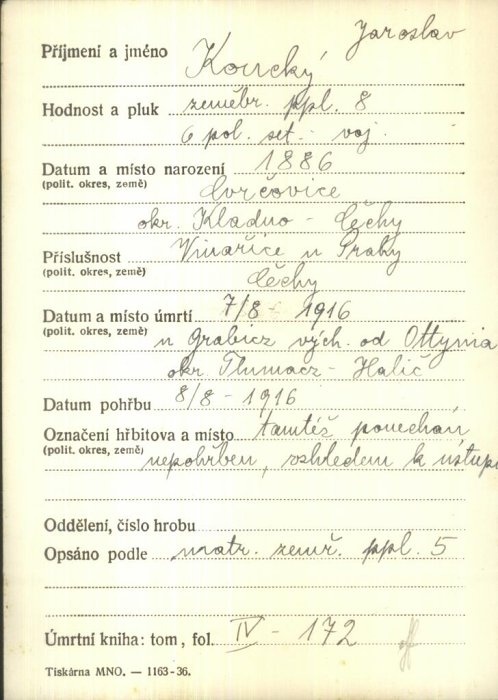 Jaroslav
Příjmení a jméno Koucký
Hodnost a pluk zeměbr. ppl. 8
6 pol. set. - voj.
Datum a místo narození 1886
(polit. okres, země) Cvrčovice
okr. Kladno - Čechy
Příslušnost Vinařice u Prahy
(polit. okres, země) Čechy
Datum a místo úmrtí 7/8 - 1916
(polit. okres, země) u Grabicz vých. od Ottynia
okr. Tlumacz - Halič
Datum pohřbu 8/8 - 1916
Označení hřbitova a místo tamtéž ponechán
(polit. okres, země) nepohřben, vzhledem k ústupu
Oddělení, číslo hrobu
Opsáno podle matr. zemř. ppl. 5
Úmrtní kniha: tom, fol. IV - 172
Tiskárna MNO. — 1163-36.